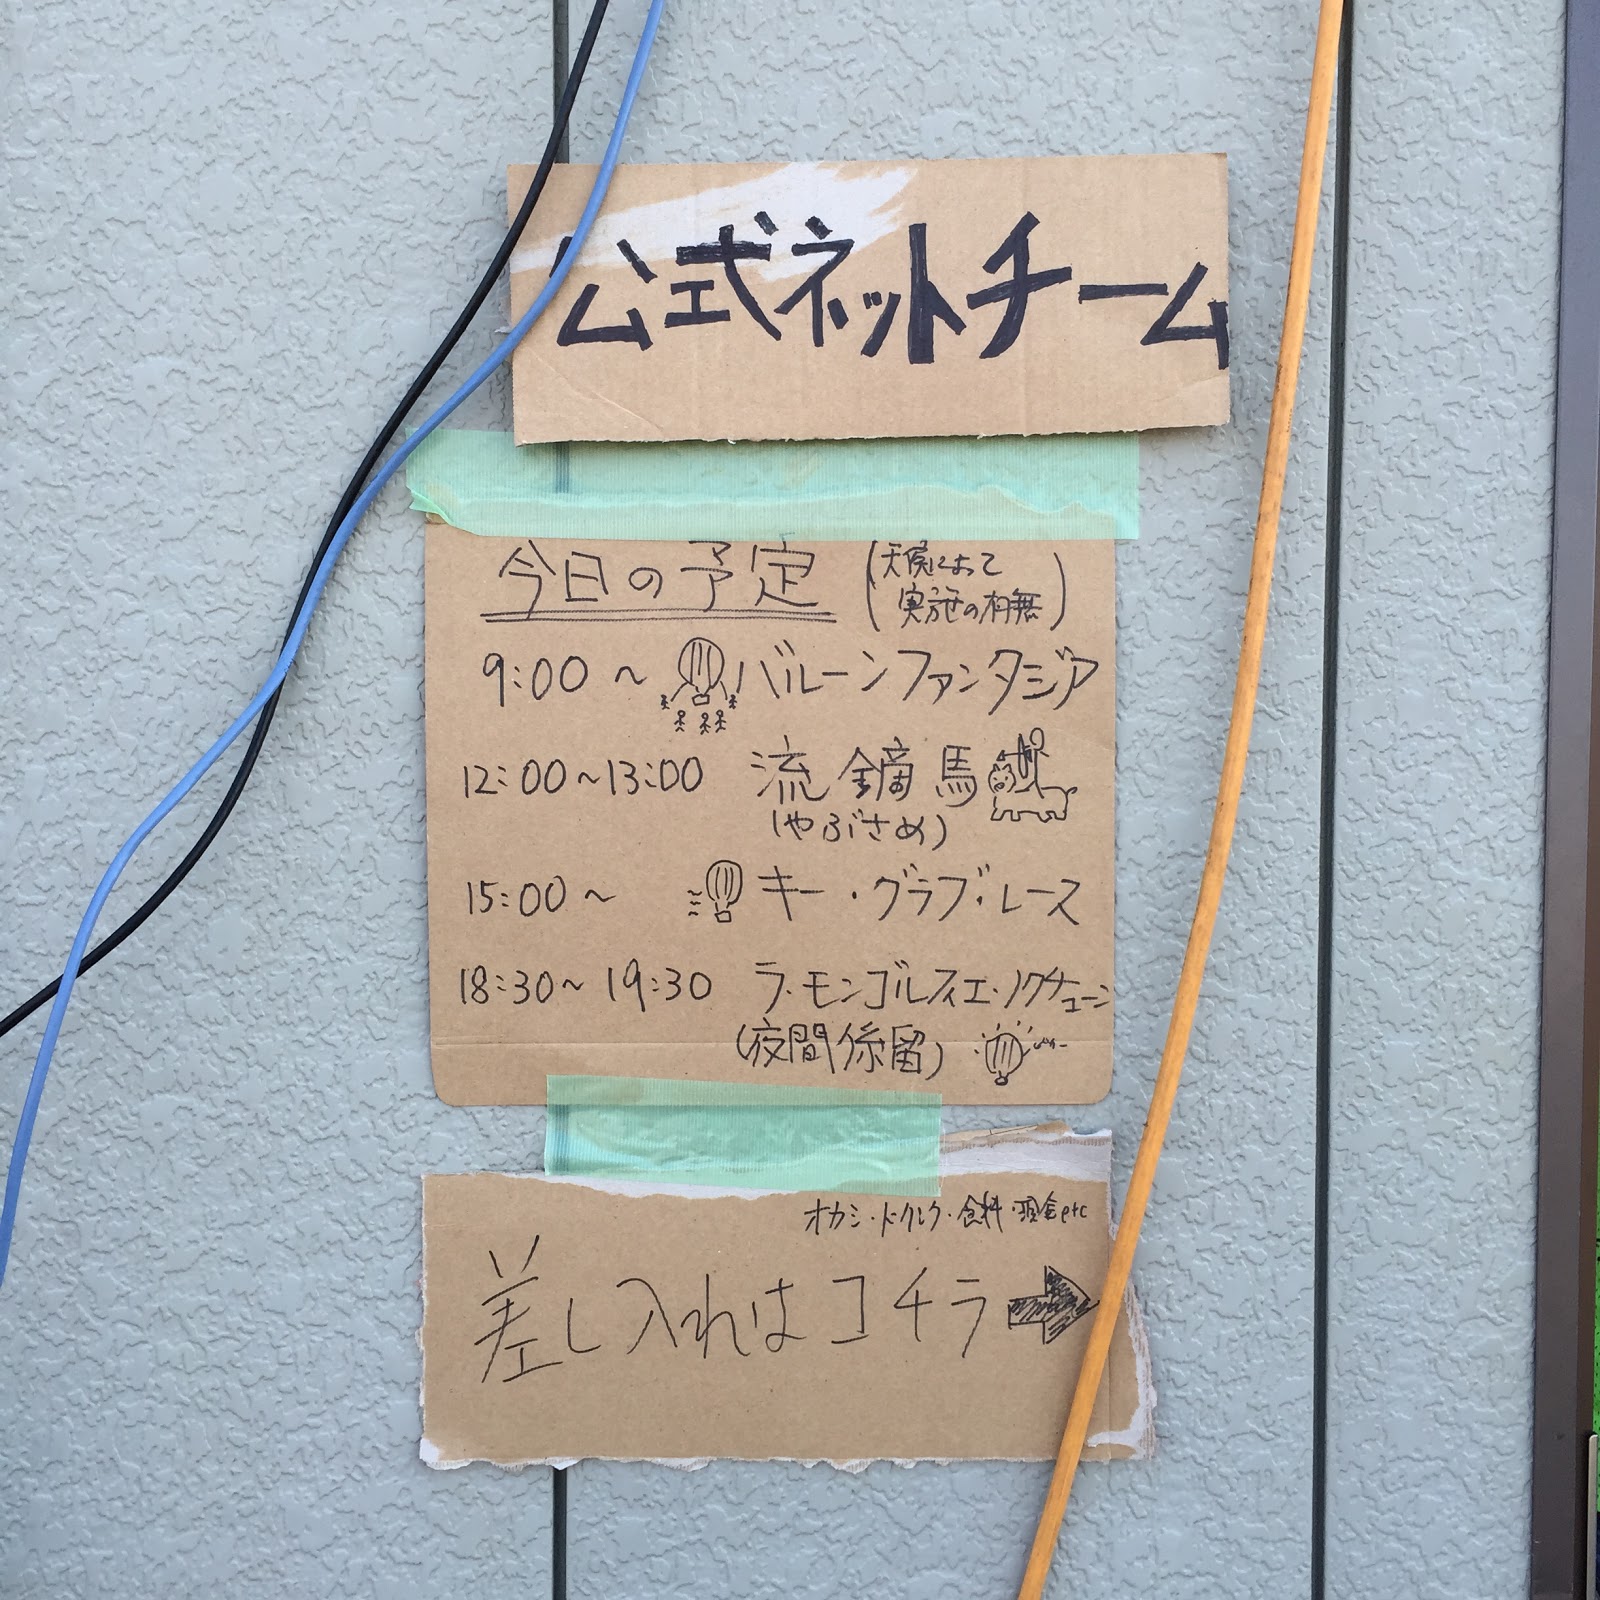 公式ネットチーム
今日の予定
(天候によって
実施の有無)
9:00～ バルーンファンタジア
12:00～13:00 流鏑馬
(やぶさめ)
15:00～ キー・グラブ・レース
18:30～19:30 ラ・モンゴルフィエ・ノクチューン
(夜間係留)
オカシ・ドリンク・食料・現金etc
差し入れはコチラ